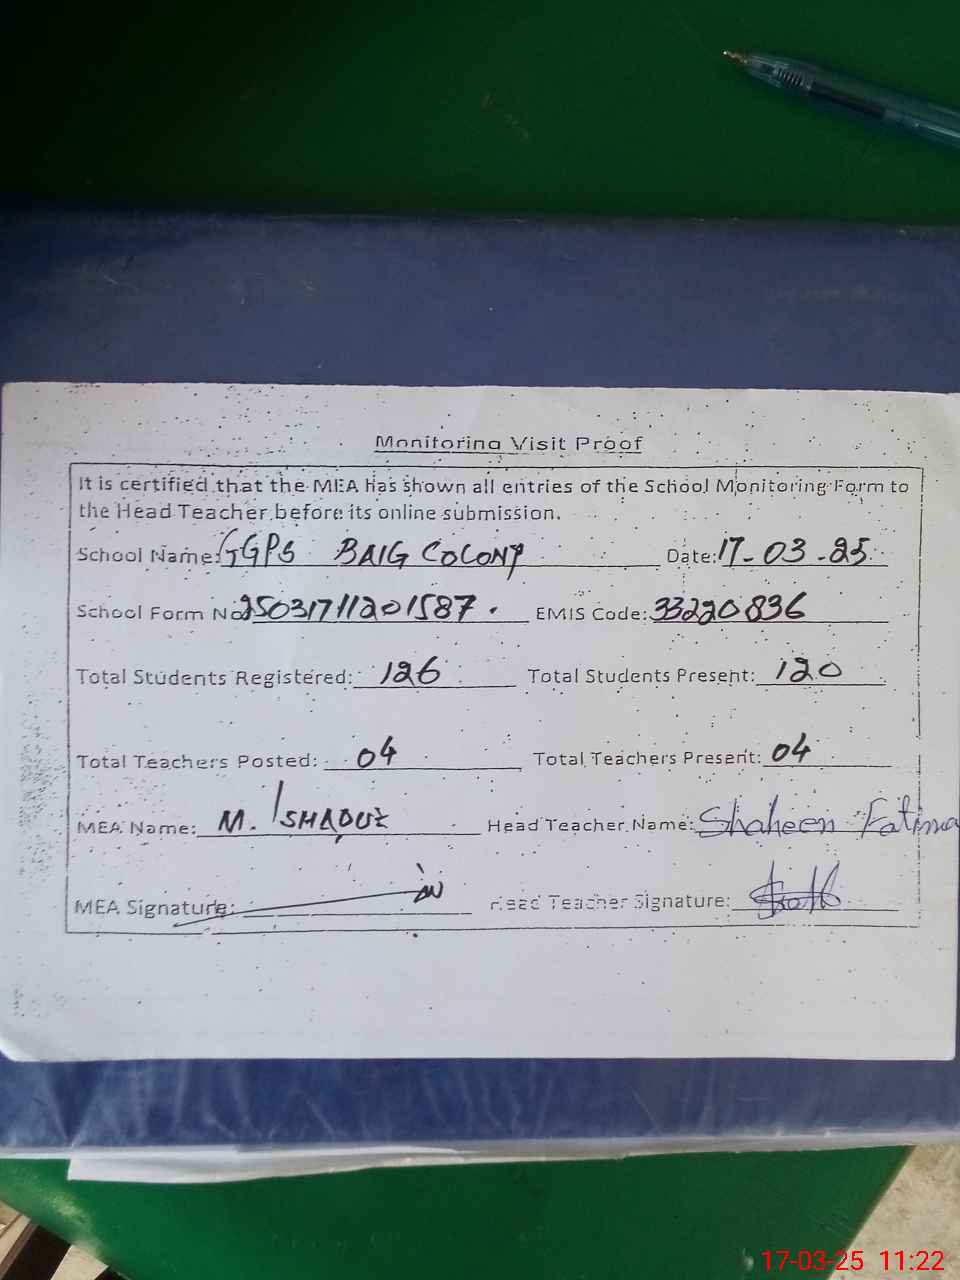 Monitoring Visit Proof
It is certified that the MEA has shown all entries of the School Monitoring Form to
the Head Teacher before its online submission.
School Name: GGPS BAIG COLONY Date: 17-03-25
School Form No 25031711201587. EMIS Code: 33220836
Total Students Registered: 126 Total Students Present: 120
Total Teachers Posted: 04 Total Teachers Present: 04
MEA Name: M. Head Teacher Name: Shaheen Fatima
MEA Signature: Head Teacher Signature:
17-03-25 11:22